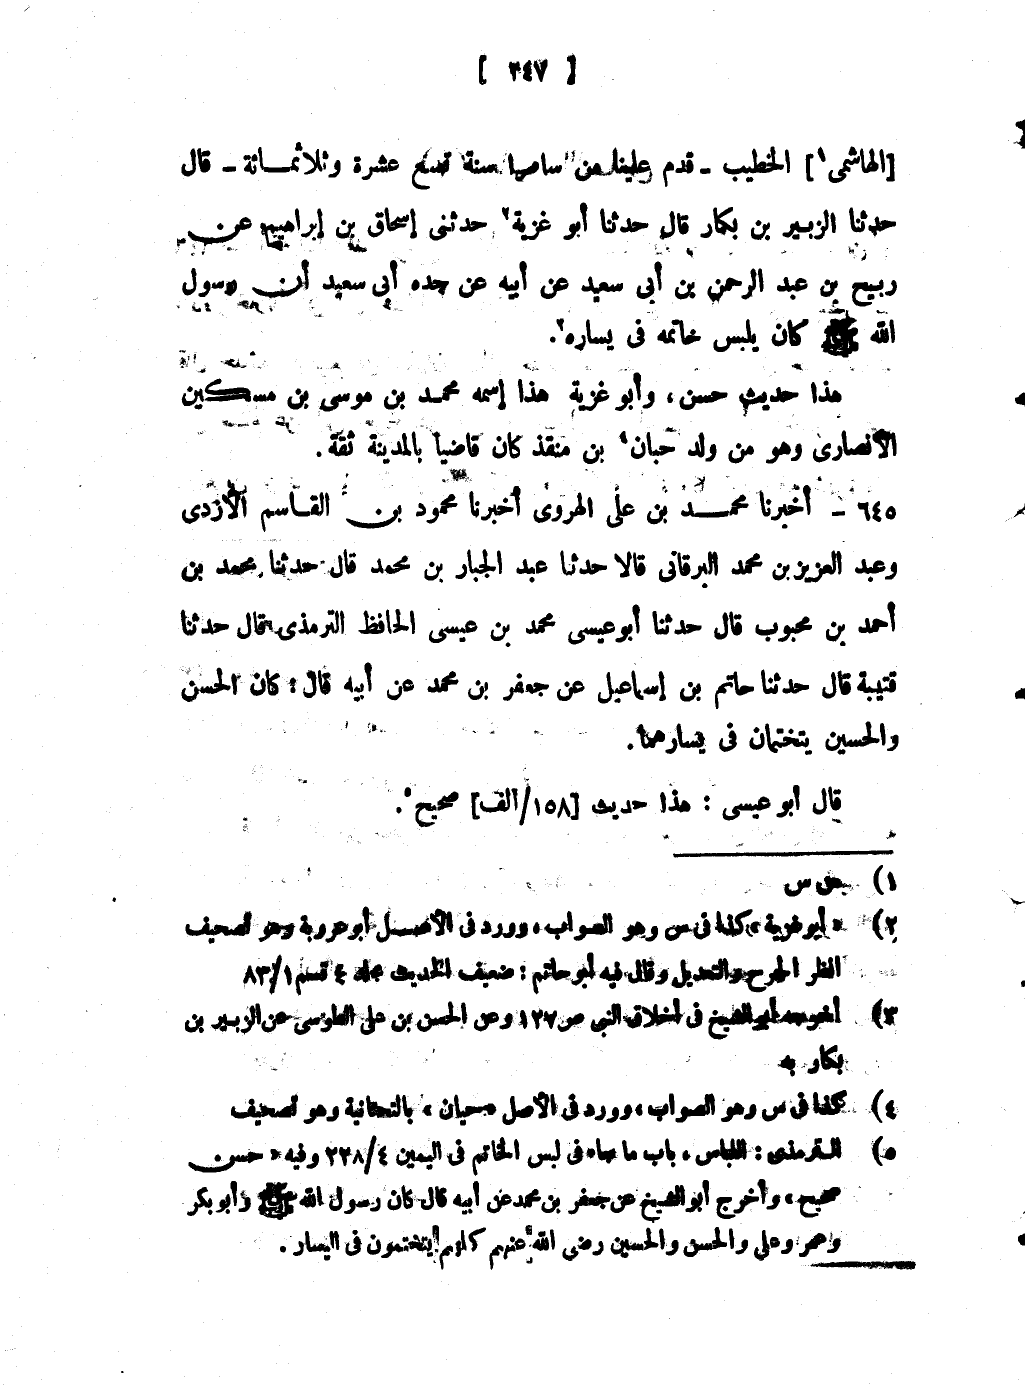 [ ٢٤٧ ]
[الهاشمى١] الخطيب - قدم علينا من سامرا سنة تسع عشرة وثلاثمائة - قال
حدثنا الزبير بن بكار قال حدثنا أبو غزية٢ حدثنى إسحاق بن إبراهيم عن
ربيح بن عبد الرحمن بن أبى سعيد عن أبيه عن جده أبى سعيد أن رسول
الله ﷺ كان يلبس خاتمه فى يساره٣.
هذا حديث حسن، وأبو غزية هذا إسمه محمد بن موسى بن مسكين
الأنصارى وهو من ولد حبان٤ بن منقذ كان قاضيا بالمدينة ثقة.
٦٤٥ - أخبرنا محمد بن على الهروى أخبرنا محمود بن القاسم الأزدى
وعبد العزيز بن محمد البرقانى قالا حدثنا عبد الجبار بن محمد قال حدثنا محمد بن
أحمد بن محبوب قال حدثنا أبو عيسى محمد بن عيسى الحافظ الترمذى قال حدثنا
قتيبة قال حدثنا حاتم بن إسماعيل عن جعفر بن محمد عن أبيه قال: كان الحسن
والحسين يتختمان فى يسارهما.
قال أبو عيسى: هذا حديث [١٥٨/ألف] صحيح٥.
١) من س
٢) «أبو غزية» كذا فى س وهو الصواب، وورد فى الأصل أبو عروبة وهو تصحيف
انظر الجرح والتعديل وقال فيه أبو حاتم: ضعيف الحديث مجلد ٤ قسم ٨٣/١
٣) أخرجه أبو الشيخ فى أخلاق النبى ص ١٢٧ وعن الحسن بن على الطوسى عن الزبير بن
بكار به
٤) كذا فى س وهو الصواب، وورد فى الأصل «حيان» بالتحتانية وهو تصحيف
٥) الترمذى: اللباس، باب ما جاء فى لبس الخاتم فى اليمين ٢٢٨/٤ وفيه «حسن
صحيح» وأخرج أبو الشيخ عن جعفر بن محمد عن أبيه قال كان رسول الله ﷺ وأبو بكر
وعمر وعلى والحسن والحسين رضى الله عنهم كلهم يتختمون فى اليسار.